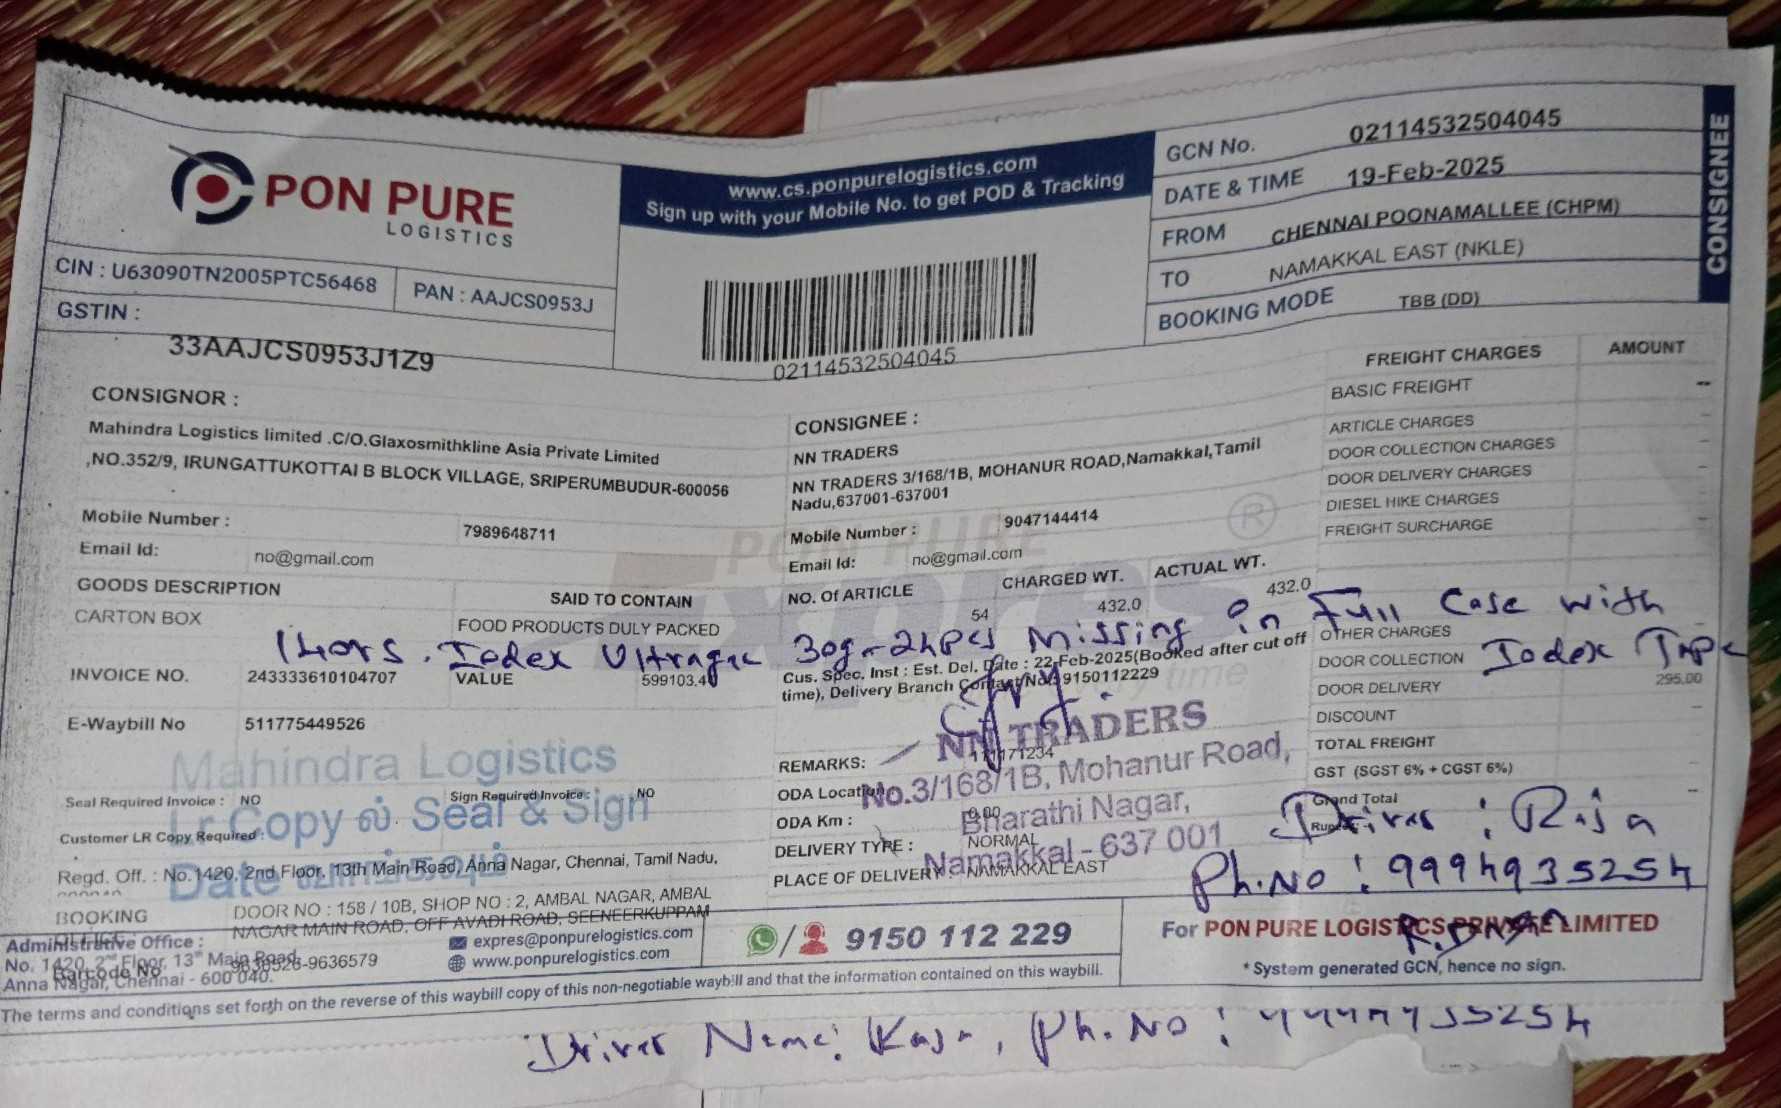 PON PURE
LOGISTICS
www.cs.ponpurelogistics.com
Sign up with your Mobile No. to get POD & Tracking
GCN No. 02114532504045
DATE & TIME 19-Feb-2025
FROM CHENNAI POONAMALLEE (CHPM)
TO NAMAKKAL EAST (NKLE)
BOOKING MODE TBB (DD)
CONSIGNEE
CIN : U63090TN2005PTC56468
PAN : AAJCS0953J
GSTIN :
33AAJCS0953J1Z9
02114532504045
CONSIGNOR :
Mahindra Logistics limited .C/O.Glaxosmithkline Asia Private Limited
,NO.352/9, IRUNGATTUKOTTAI B BLOCK VILLAGE, SRIPERUMBUDUR-600056
Mobile Number : 7989648711
Email Id: no@gmail.com
CONSIGNEE :
NN TRADERS
NN TRADERS 3/168/1B, MOHANUR ROAD,Namakkal,Tamil
Nadu,637001-637001
Mobile Number : 9047144414
Email Id: no@gmail.com
FREIGHT CHARGES AMOUNT
BASIC FREIGHT --
ARTICLE CHARGES -
DOOR COLLECTION CHARGES -
DOOR DELIVERY CHARGES -
DIESEL HIKE CHARGES -
FREIGHT SURCHARGE -
PON PURE
Expres ®
GOODS DESCRIPTION SAID TO CONTAIN NO. Of ARTICLE CHARGED WT. ACTUAL WT.
CARTON BOX FOOD PRODUCTS DULY PACKED 54 432.0 432.0
Iodex Ultragel 30g-24pcs Missing in Full Case with
Iodex
INVOICE NO. 243333610104707 VALUE 599103.40
Cus. Spec. Inst : Est. Del. Date : 22-Feb-2025(Booked after cut off
time), Delivery Branch Contact No : 9150112229
OTHER CHARGES
DOOR COLLECTION
DOOR DELIVERY 295.00
DISCOUNT -
TOTAL FREIGHT
GST (SGST 6% + CGST 6%) -
Grand Total
E-Waybill No 511775449526
Mahindra Logistics
Lr Copy ல் Seal & Sign
Date
Seal Required Invoice : NO Sign Required Invoice : NO
Customer LR Copy Required :
REMARKS:
ODA Location
ODA Km : 0.00
DELIVERY TYPE : NORMAL
PLACE OF DELIVERY NAMAKKAL EAST
NN TRADERS
No.3/168/1B, Mohanur Road,
Bharathi Nagar,
Namakkal - 637 001
Driver : Raja
Ph.No : 9994935254
Regd. Off. : No.1420, 2nd Floor, 13th Main Road, Anna Nagar, Chennai, Tamil Nadu,
BOOKING DOOR NO : 158 / 10B, SHOP NO : 2, AMBAL NAGAR, AMBAL
NAGAR MAIN ROAD, OFF AVADI ROAD, SEENEERKUPPAM
Administrative Office :
No. 1420, 2nd Floor, 13th Main Road,
Anna Nagar, Chennai - 600 040.
Barcode No 9636526-9636579
expres@ponpurelogistics.com
www.ponpurelogistics.com
9150 112 229
For PON PURE LOGISTICS PRIVATE LIMITED
*System generated GCN, hence no sign.
The terms and conditions set forth on the reverse of this waybill copy of this non-negotiable waybill and that the information contained on this waybill.
Driver Name: Raja, Ph.No :